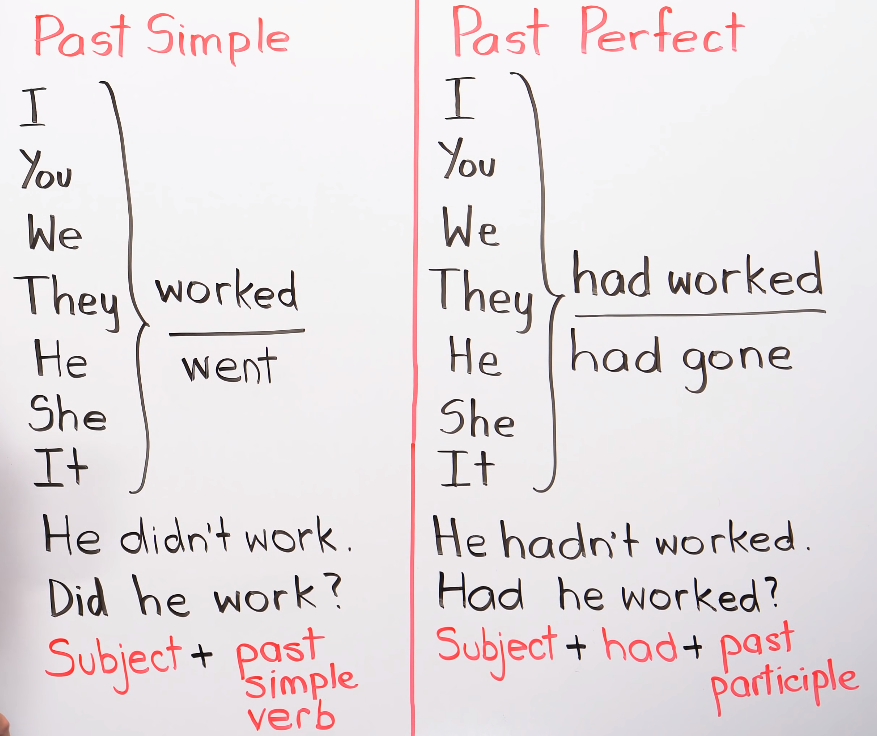 Past Simple
I
You
We
They
He
She
It
worked
went
He didn't work.
Did he work?
Subject + past
simple
verb
Past Perfect
I
You
We
They
He
She
It
had worked
had gone
He hadn't worked.
Had he worked?
Subject + had + past
participle